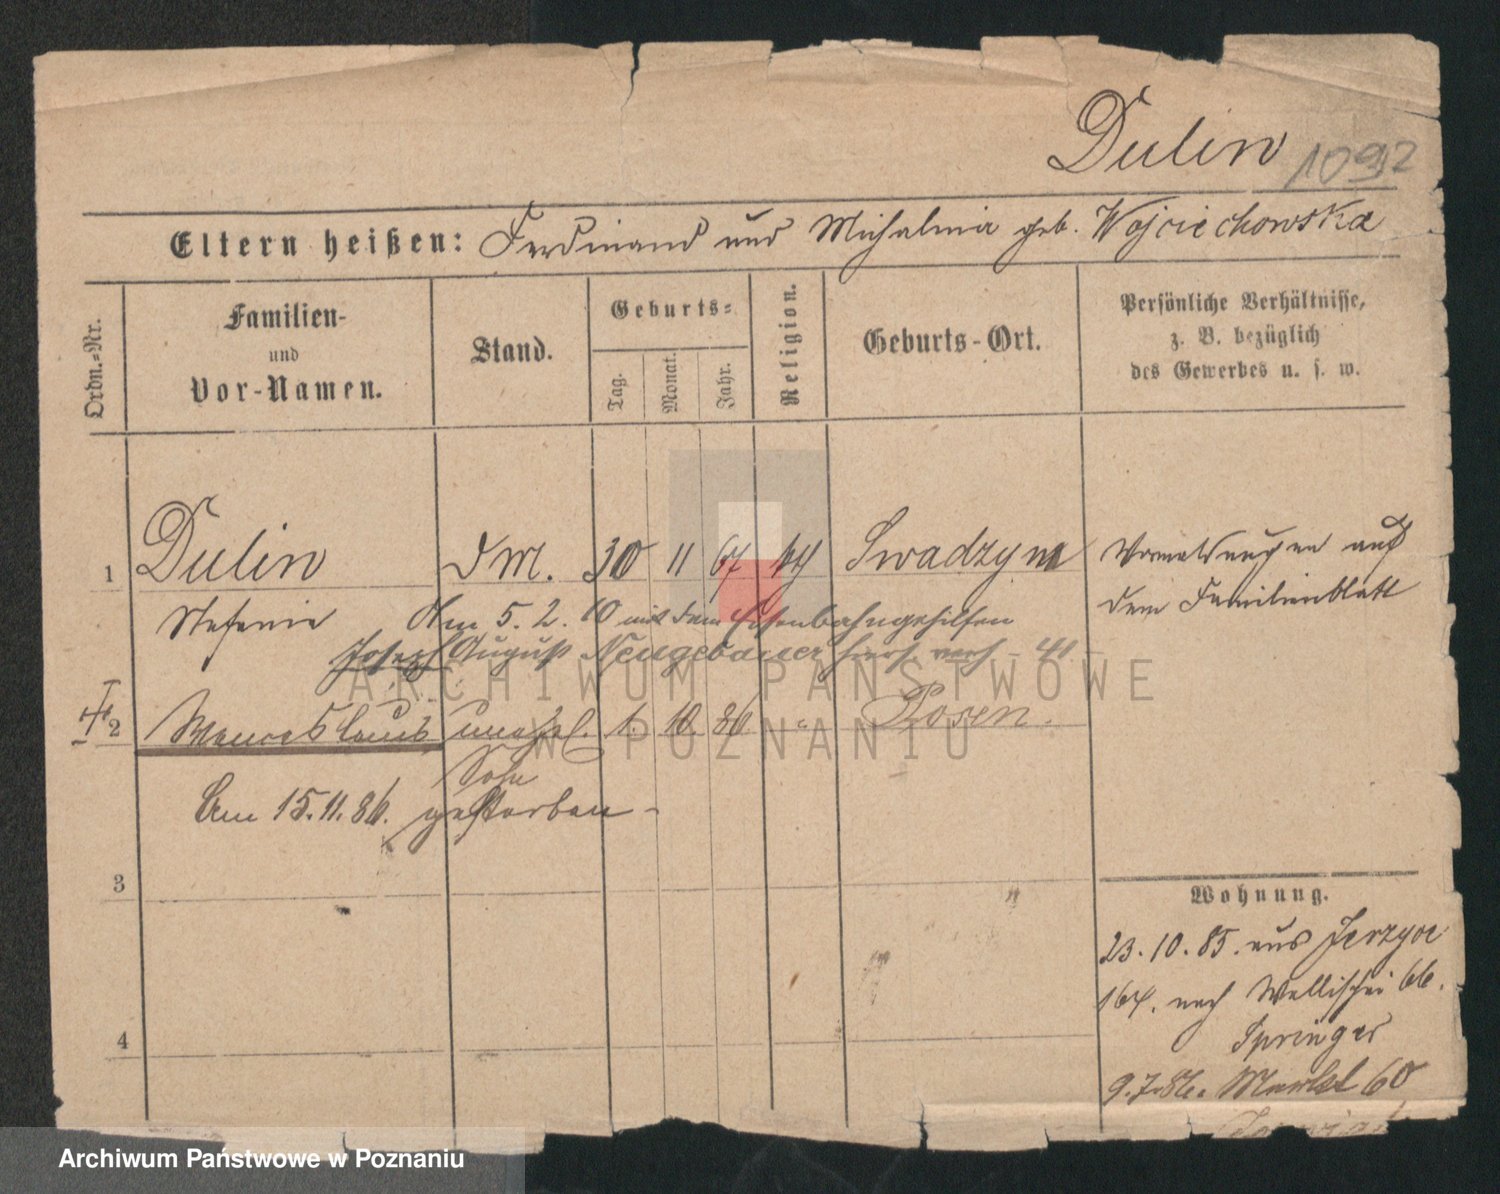 Dulin 1092
Eltern heißen: Ferdinand und Michalina geb. Wojciechowska
Ordn.=Nr.
Familien-
und
Vor-Namen.
Stand.
Geburts=
Tag.
Monat.
Jahr.
Religion.
Geburts-Ort.
Persönliche Verhältnisse,
z. B. bezüglich
des Gewerbes u. s. w.
1 Dulin DM. 30 11 67 kth Swadzym
Stefanie
Am 5. 2. 10 mit dem Eisenbahngehilfen
Joseph August Neugebauer hier verh
auf
dem Familienblatt
2 Wenceslaus unehel. 1. 10. 86 " Posen.
Sohn
Am 15.11.86. gestorben -
3
4
Wohnung.
23.10.85. aus Jerzyce
164. nach Wallischei 66.
Springer
9.7.86. Markt 60
ARCHIWUM PAŃSTWOWE
W POZNANIU
Archiwum Państwowe w Poznaniu